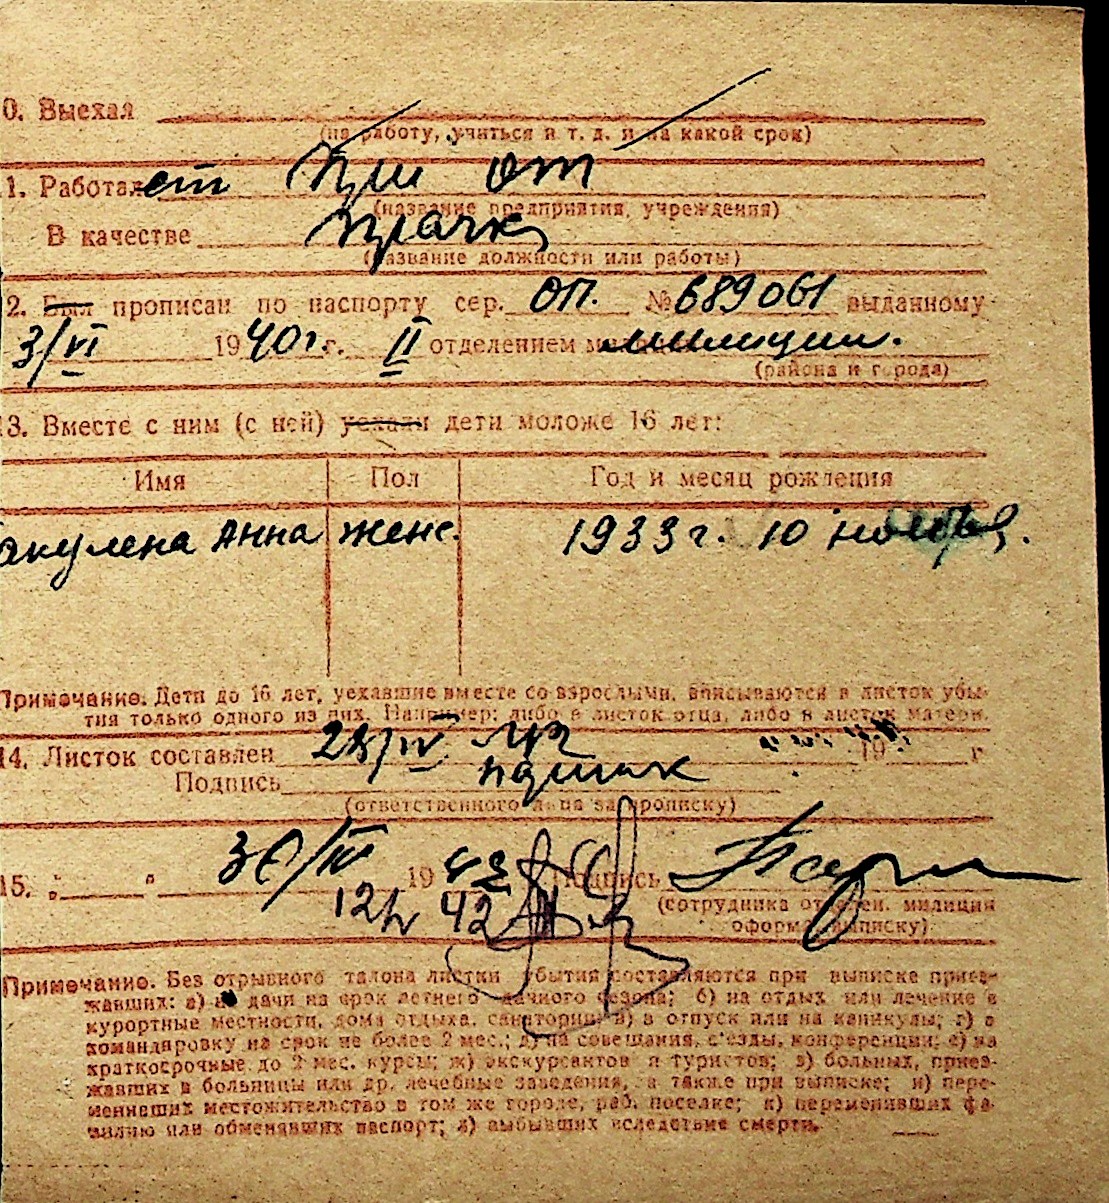 0. Выехал
(на работу, учиться и т. д. и на какой срок)
1. Работает При
(название предприятия, учреждения)
В качестве Прачка
(название должности или работы)
2. Был прописан по паспорту сер. ОП. № 689061 выданному
3/VI 1940 г. г. II отделением милиции.
(района и города)
13. Вместе с ним (с ней) уехали дети моложе 16 лет:
Имя Пол Год и месяц рождения
акулена Анна женс. 1933 г. 10 ноября.
Примечание. Дети до 16 лет, уехавшие вместе со взрослыми, вписываются в листок убы-
тия только одного из них. Например: либо в листок отца, либо в листок матери.
14. Листок составлен 28/IV 19 г
Подпись
(ответственного лица за прописку)
15. „ “ 30/IV 19 42 Подпись
12/IV 42
(сотрудника отделен. милиции
оформ. выписку)
Примечание. Без отрывного талона листки убытия составляются при выписке приез-
жавших: а) на дачи на срок летнего дачного сезона; б) на отдых или лечение в
курортные местности, дома отдыха, санатории; в) в отпуск или на каникулы; г) в
командировку на срок не более 2 мес.; д) на совещания, с'езды, конференции; е) на
краткосрочные до 2 мес. курсы; ж) экскурсантов и туристов; з) больных, приез-
жавших в больницы или др. лечебные заведения, а также при выписке; и) пере-
менивших местожительство в том же городе, раб. поселке; к) переменивших фа-
милию или обменявших паспорт; л) выбывших вследствие смерти.